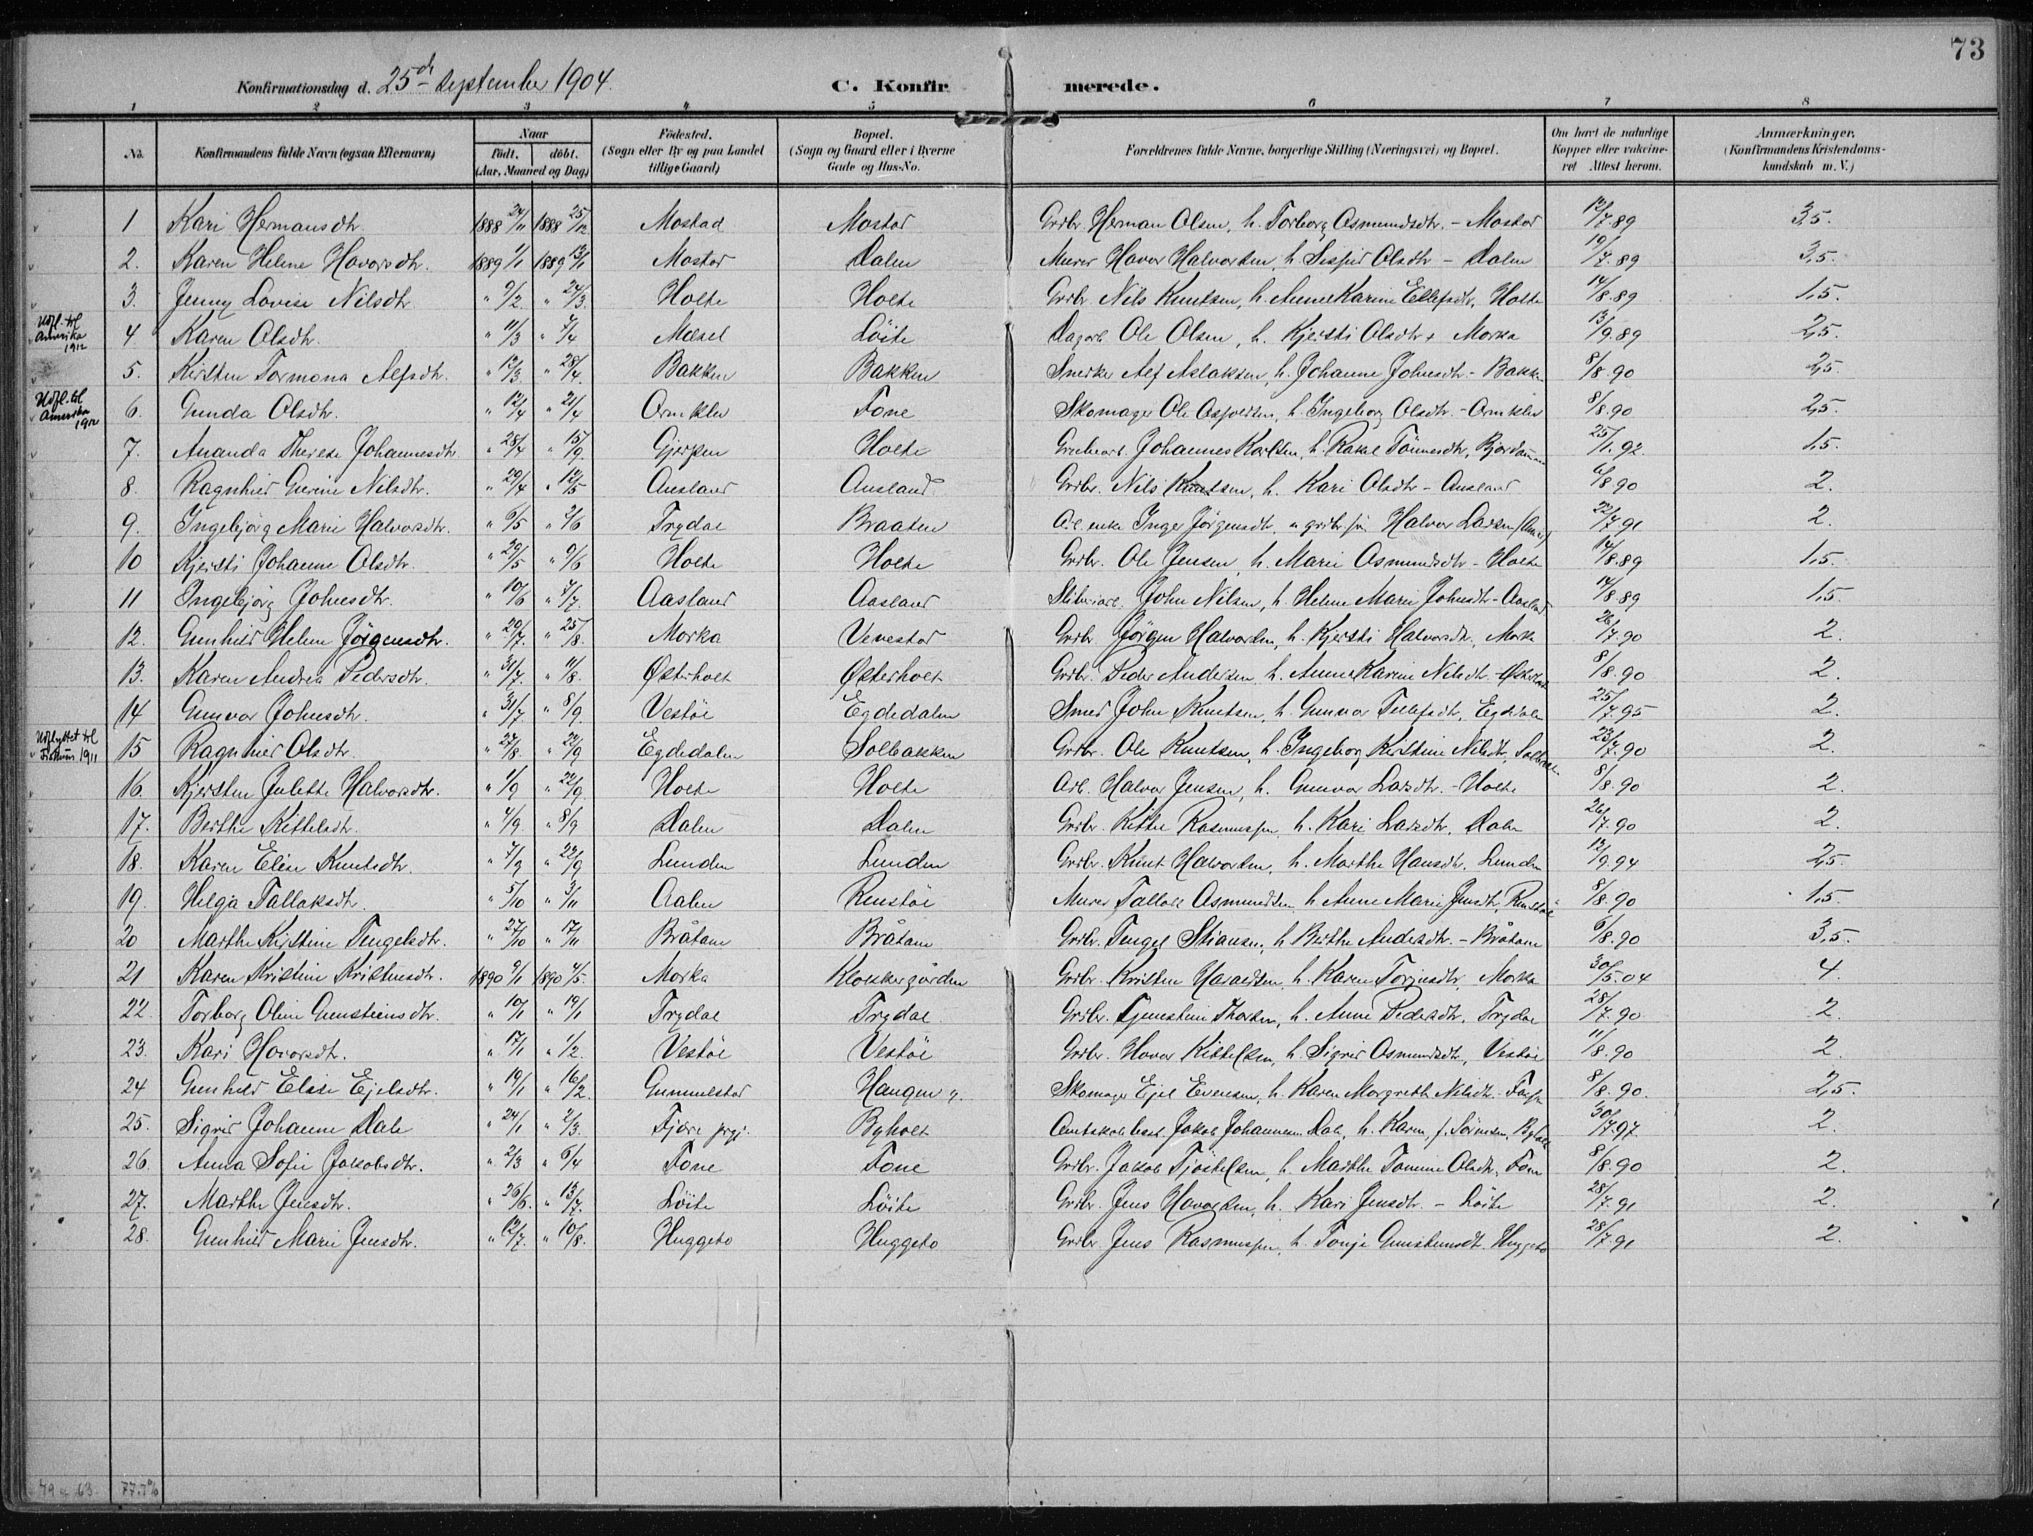 73
Konfirmationsdag d. 25de September 1904.
C. Konfirmerede.
1 2 3 4 5 6 7 8
No. Konfirmandens fulde Navn (ogsaa Efternavn) Naar født. døbt. (Aar, Maaned og Dag) Fødested. (Sogn eller By og paa Landet tillige Gaard) Bopæl. (Sogn og Gaard eller i Byerne Gade og Hus-No. Forældrenes fulde Navne, borgerlige Stilling (Næringsvei) og Bopæl. Om havt de naturlige Kopper eller vakcineret Attest herom. Anmærkninger. (Konfirmandens Kristendomskundskab m. V.)
1 Kari Hermansdtr. 1888 24/11 1888 25/12 Mostad Mostad Grdbr. Herman Olsen, h. Torborg Asmundsdtr. - Mostad 12/7.89 3,5.
2. Karen Helene Hovorsdtr. 1889 1/1 1889 13/1 Mostad Dalen Murer Hovor Halvorsen, h. Olsdtr - Dalen 19/7.89 3,5.
3. Jenny Lovise Nilsdtr. " 9/2 " 24/3. Holte Holte Grdbr. Nils Knutsen, h. Anne Karine Ellefsdtr, Holte 14/8.89 1,5.
Udfl. til Amerika 1912 4 Karen Olsdtr. " 11/3 " 7/4 Mæsel Løite Dagarb. Ole Olsen, h. Kjersti Olsdtr, Morka 13/9.89 2,5.
5. Kirsten Tormona Alfsdtr. " 12/3. " 28/4. Bakken Bakken Snedker Alf Aslaksen, h. Johanne Johnsdtr - Bakken 8/8 90 2,5.
Udfl. til Amerika 1912 6. Gunda Olsdtr. " 12/4 " 21/4 Ornklev Fone Skomager Ole h. Ingeborg Olsdtr. - Ornklev 8/8.90 2,5.
7. Ananda Therese Johannesdtr " 28/4 " 15/9. Gjerpen Holte Johannes Karlsen, h. Rakel Tønnesdtr, 25/1.92. 1,5.
8. Ragnhild Gurine Nilsdtr. " 29/4 " 12/5 Ausland Ausland Grdbr. Nils Knutsen, h. Kari Olsdtr - Ausland 6/8 90 2.
9. Ingebjørg Marie Halvorsdtr. " 6/5 " 2/6 Trydal Braaten Inger Jørgensdtr. Halvor Larsen 22/7 91 2.
10 Kjersti Johanne Olsdtr. " 29/5 " 9/6 Holte Holte Grdbr. Ole Jensen, h. Marie Asmundsdtr - Holte 14/8.89 1,5.
11 Ingebjørg Johnsdtr. " 10/6 " 7/7. Aasland Aasland John Nilsen, h. Helene Marie Johnsdtr - Aasland 14/8 89 1,5.
12. Gunhild Helene Jørgensdtr. " 29/7. " 25/8. Morka Vevestad Grdbr Jørgen Halvorsen, h. Kjersti Halvorsdtr, Morka 26/7.90 2.
13. Karen Andrea Pedersdtr. " 31/7. " 11/8. Østerholt Østerholt Grdbr. Peder Andersen, h. Anne Karine Nilsdtr - Østerholt 8/8.90 2.
14 Gunvor Johnsdtr. " 31/7 " 8/9. Vestøl Egdedalen Smed John Knutsen, h. Gunvor Tellefsdtr, Egdedalen 25/7.95 2.
Udflyttet til 1911 15 Ragnhild Olsdtr. " 27/8. " 22/9 Egdedalen Solbakken Grdbr. Ole Knutsen, h. Ingeborg Kirstine Nilsdtr, Solbakken 23/7.90 2.
16. Kjersten Julette Halvorsdtr. " 1/9 " 22/9. Holte Holte Arb. Halvor Jensen, h. Gunvor Larsdtr. - Holte 8/8.90 2.
17. Berthe Kittelsdtr. " 4/9. " 8/9 Dalen Dalen Grdbr. Kittel Rasmussen h. Kari Larsdtr. Dalen 26/7.90 2.
18. Karen Elise Knutsdtr. " 7/9 " 22/9 Lunden Lunden Grdbr. Knut Halvorsen, h. Marthe Hansdtr. Lunden 12/9.94 2,5.
19. Helga Tallaksdtr. " 5/10 " 3/11 Aalen Renstøl Murer Tallak Asmundsen, h Anne Marie Jensdtr, Renstøl 8/8.90 1,5.
20 Marthe Kirstine Tengelsdtr. " 27/10 " 17/11 Bråtane Bråtane Grdbr. Tengel Stiansen, h Berthe Andersdtr. - Bråtane 6/8.90 3,5.
21 Karen Kristine Kristensdtr. 1890 9/1 1890 4/5. Morka Klokkergården Grdbr. Kristen Haraldsen, h. Karen Torjusdtr, Morka 30/5.04 4.
22. Torborg Oline Gunsteinsdtr. " 10/1 " 19/1 Trydal Trydal. Grdbr. Gunstein Thorsen, h. Anne Pedersdtr, Trydal 28/7.90 2.
23. Kari Hovorsdtr. " 17/1 " 1/2. Vestøl Vestøl Grdbr. Hovor Kittelsen, h. Sigrid Asmundsdtr, Vestøl 11/8.90 2.
24 Gunhild Elise Ejelsdtr. " 19/1 " 16/2. Gunnulstad Haugen ". Skomager Ejel Evensen, h. Karen Margrethe Nilsdtr. 8/8.90. 2,5.
25. Sigrid Johanne Dale " 24/1 " 2/3. Fjære prgj. Byholt Jakob Johannesen Dale, h. Karen, f. Sørensen, Byholt 30/7.97. 2.
26. Anna Sofie Jakobsdtr. " 2/3 " 6/4 Fone Fone Grdbr. Jakob h. Marthe Tomine Olsdtr. Fone 8/8.90 2.
27. Marthe Jensdtr. " 26/6. " 13/7. Løite Løite Grdbr. Jens Hovorsen, h. Kari Jensdtr. - Løite 28/7.91 2.
28. Gunhild Marie Jensdtr. " 12/7. " 10/8. Huggeto Huggeto Grdbr. Jens Rasmussen, h. Tonje Gunsteinsdtr. Huggeto 28/7.91 2.
77.7%